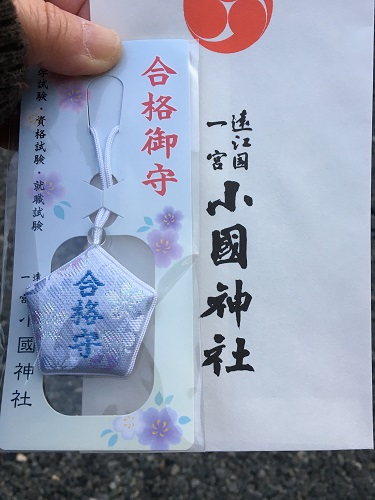 合格御守
学試験・資格試験・就職試験
合格守
遠
一宮
小國神社
遠江国
一宮
小國神社